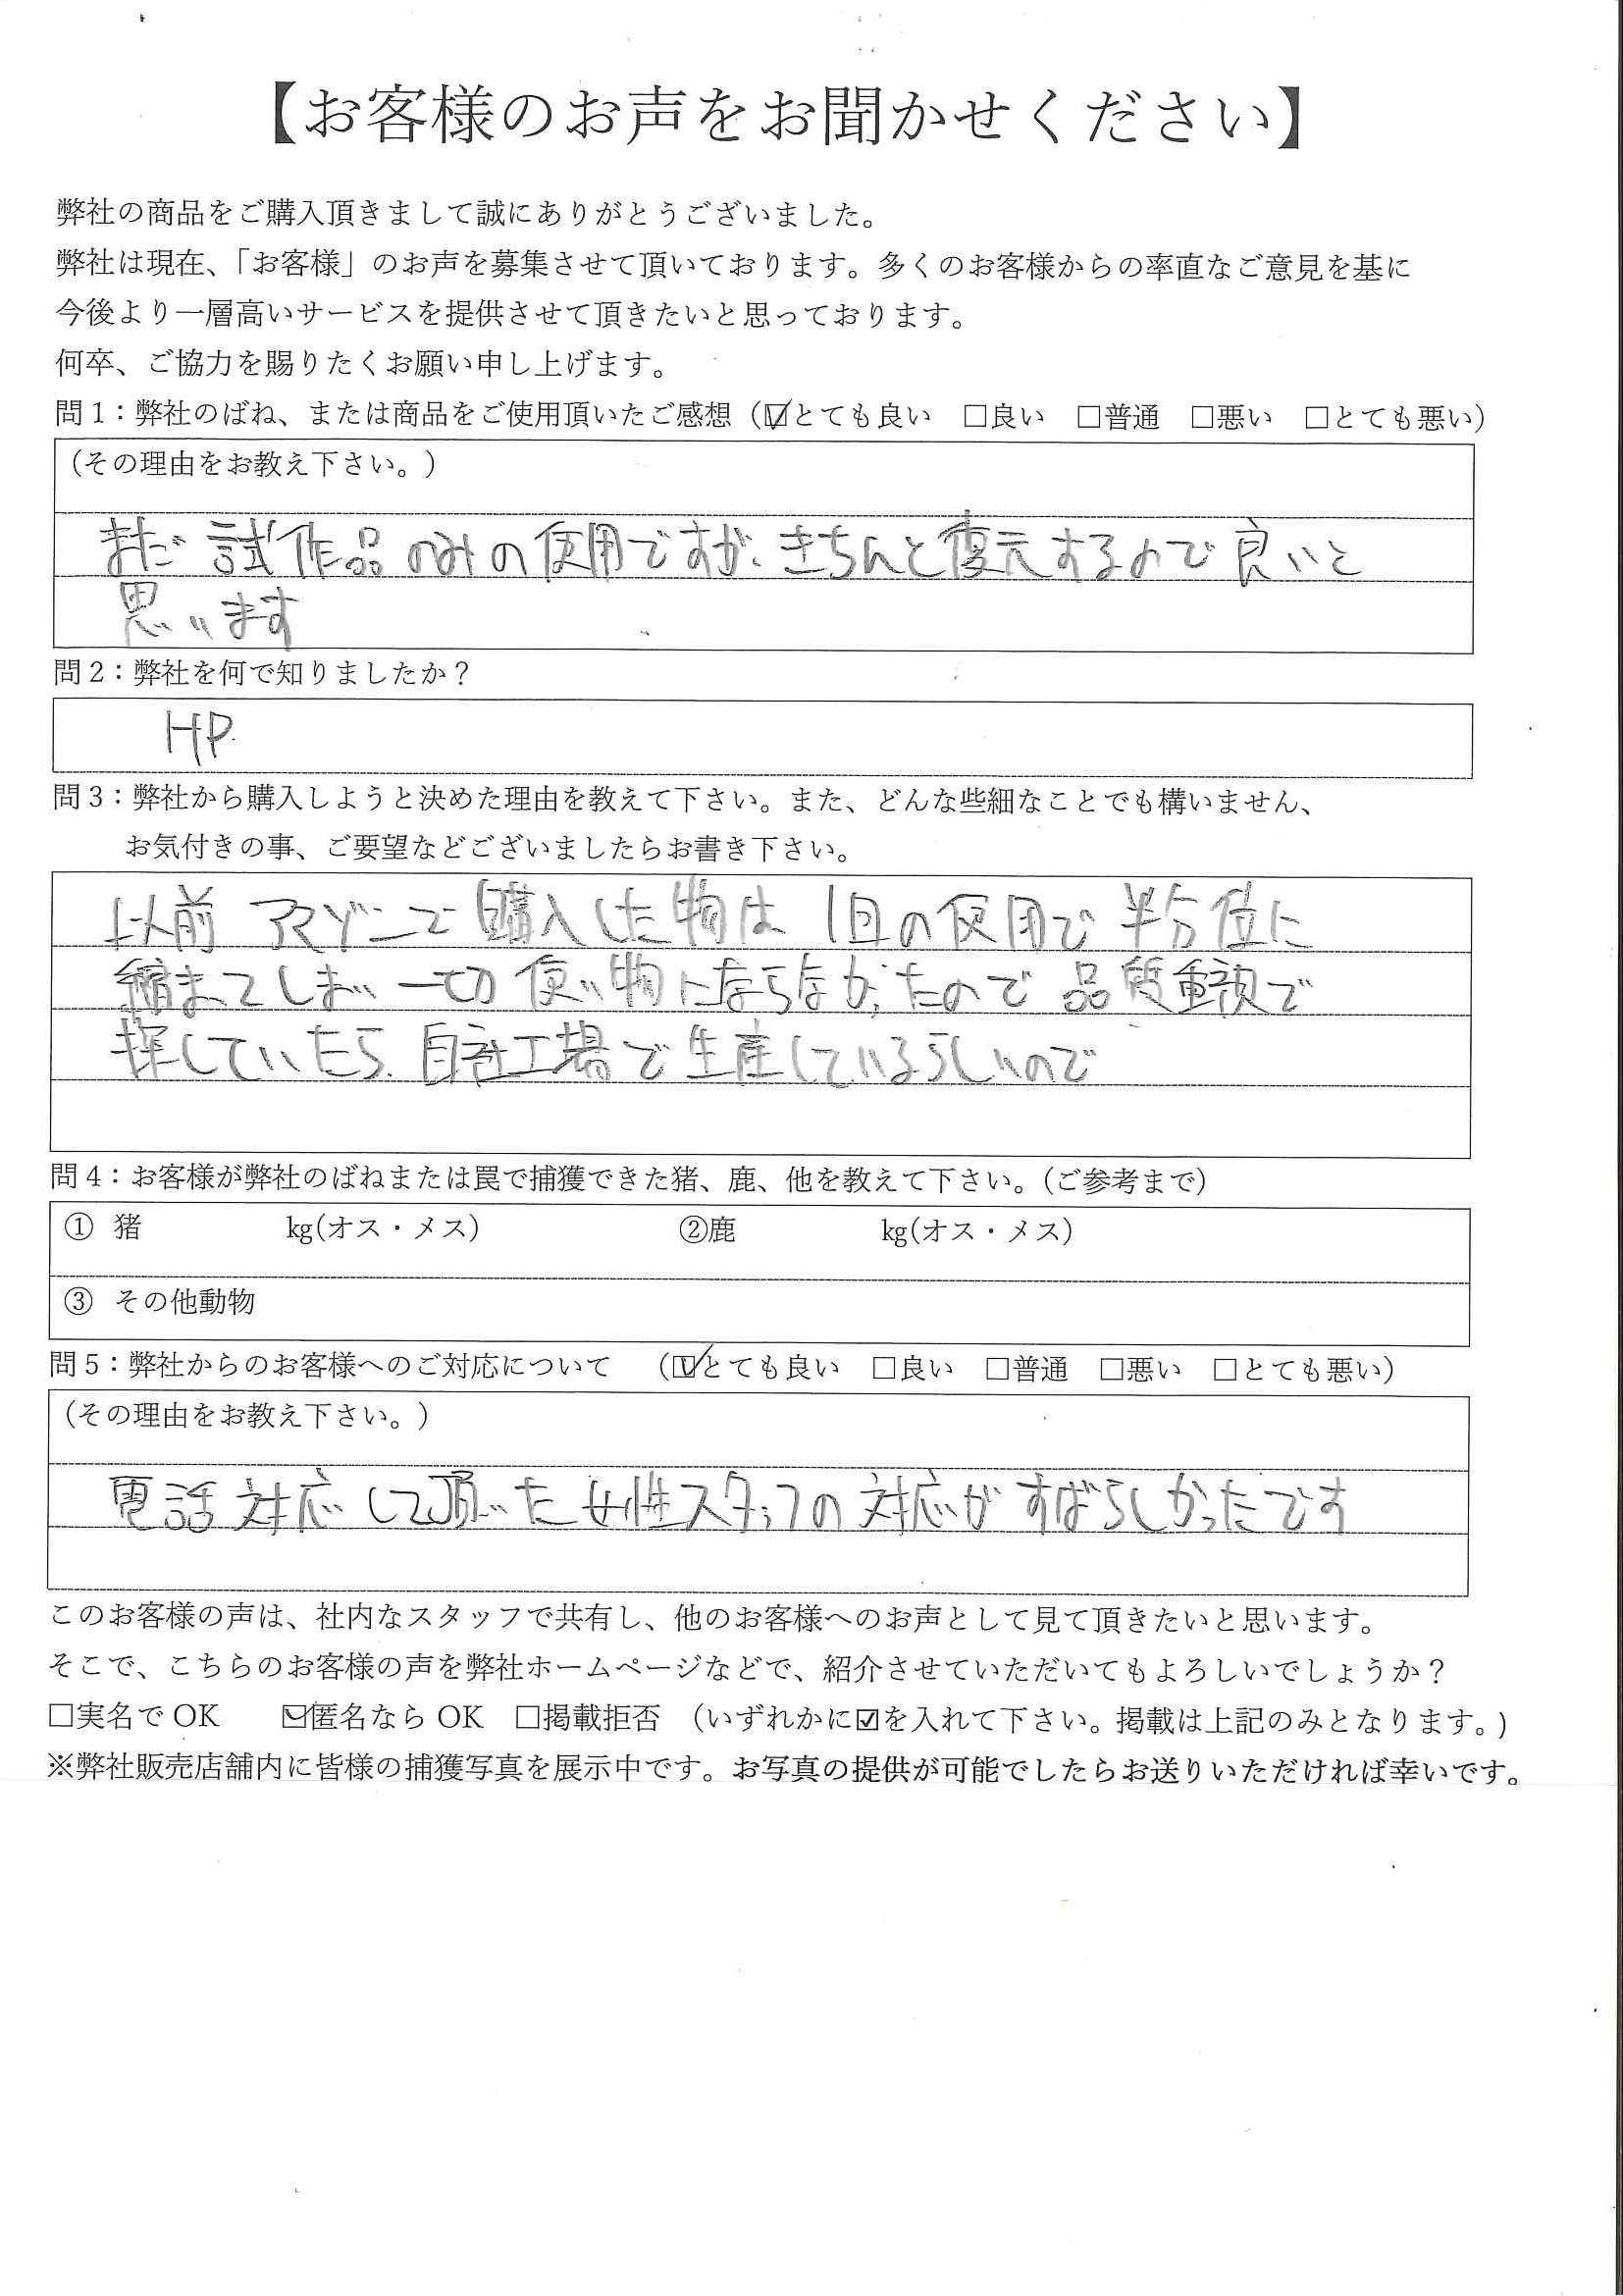 【お客様のお声をお聞かせください】
弊社の商品をご購入頂きまして誠にありがとうございました。
弊社は現在、「お客様」のお声を募集させて頂いております。多くのお客様からの率直なご意見を基に
今後より一層高いサービスを提供させて頂きたいと思っております。
何卒、ご協力を賜りたくお願い申し上げます。
問1：弊社のばね、または商品をご使用頂いたご感想（☑とても良い　□良い　□普通　□悪い　□とても悪い）
（その理由をお教え下さい。）
まだ 試作品のみの使用ですが、きちんと復元するので良いと
思います
問2：弊社を何で知りましたか？
HP
問3：弊社から購入しようと決めた理由を教えて下さい。また、どんな些細なことでも構いません、
お気付きの事、ご要望などございましたらお書き下さい。
以前 アマゾンで購入した物は 1回の使用で 半分位に
縮まってしまい 一切 使い物にならなかったので 品質重視で
探していたら、自社工場で生産しているらしいので
問4：お客様が弊社のばねまたは罠で捕獲できた猪、鹿、他を教えて下さい。（ご参考まで）
① 猪　　　　　kg(オス・メス)　　　　　②鹿　　　　　kg(オス・メス)
③ その他動物
問5：弊社からのお客様へのご対応について　（☑とても良い　□良い　□普通　□悪い　□とても悪い）
（その理由をお教え下さい。）
電話対応して頂いた 女性スタッフの対応がすばらしかったです
このお客様の声は、社内なスタッフで共有し、他のお客様へのお声として見て頂きたいと思います。
そこで、こちらのお客様の声を弊社ホームページなどで、紹介させていただいてもよろしいでしょうか？
□実名でOK　　☑匿名ならOK　□掲載拒否　（いずれかに☑を入れて下さい。掲載は上記のみとなります。)
※弊社販売店舗内に皆様の捕獲写真を展示中です。お写真の提供が可能でしたらお送りいただければ幸いです。